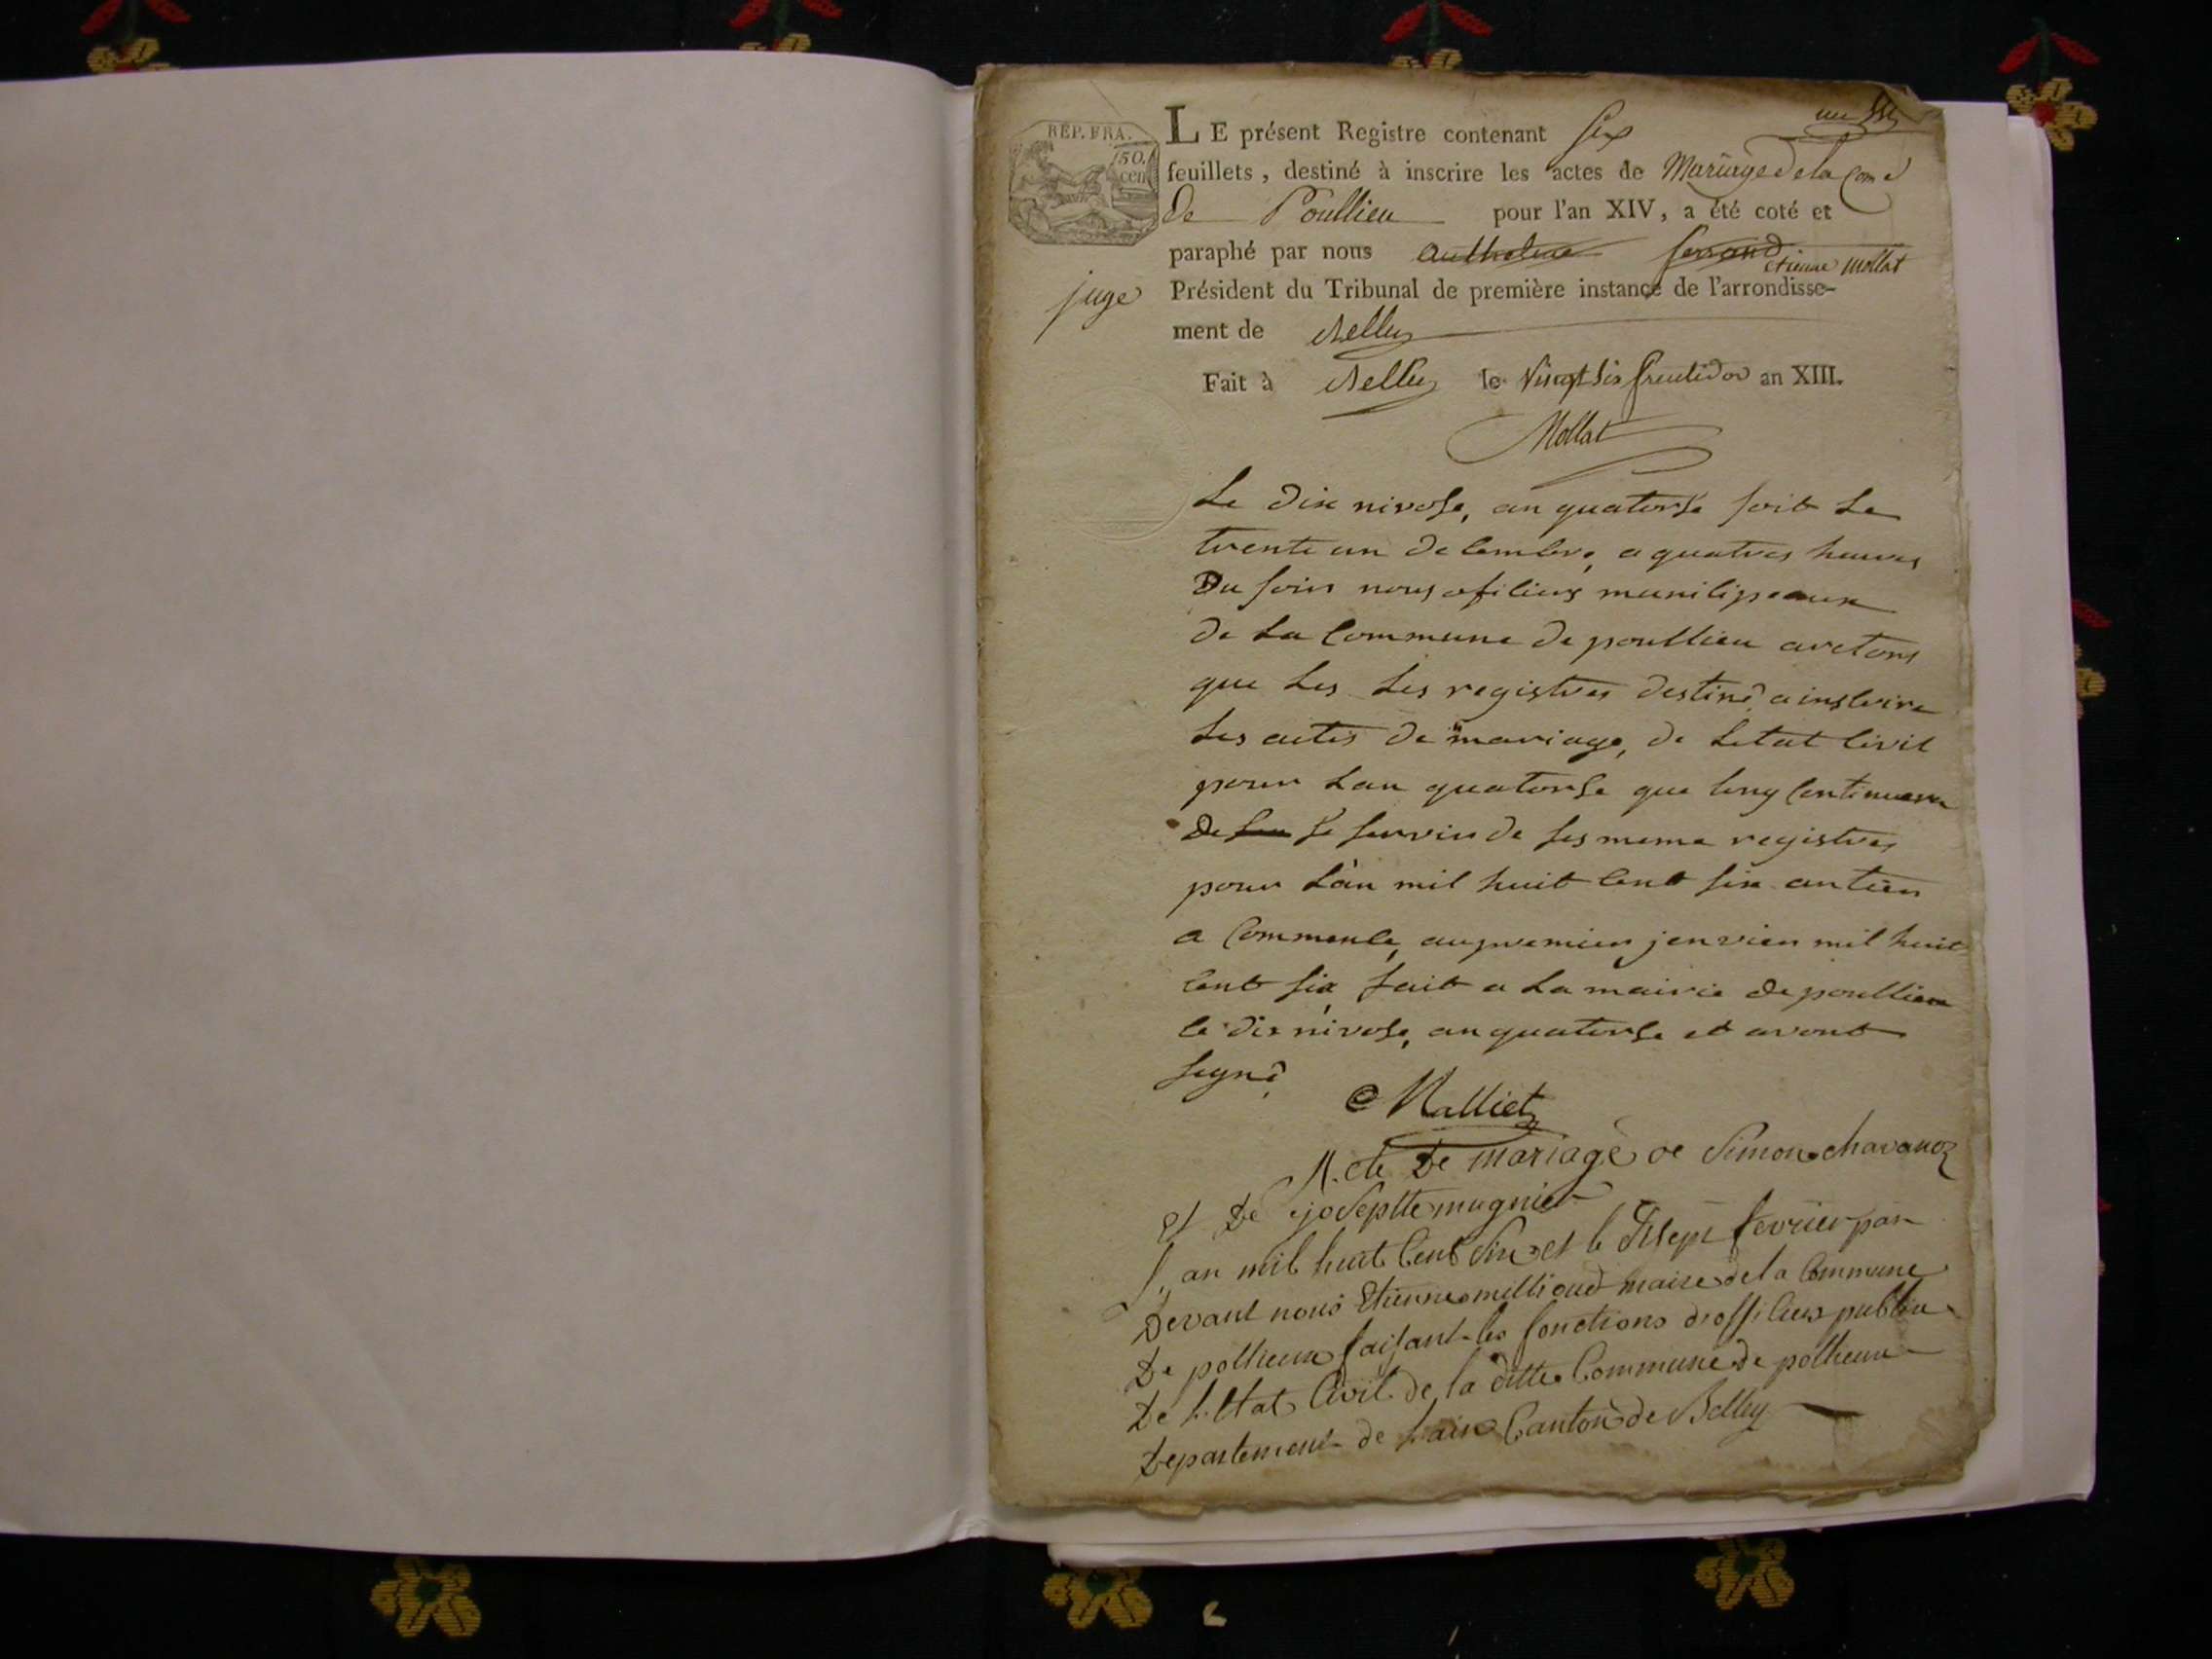 RÉP. FRA.
50.
cen
LE présent Registre contenant Six
feuillets, destiné à inscrire les actes de Mariage de la Com e
de Poullieu pour l'an XIV, a été coté et
paraphé par nous Anthelme ferrand
etienne Mollat
juge
Président du Tribunal de première instance de l'arrondisse-
ment de Belley
Fait à Belley le Vingt Six fructidor an XIII.
Mollat
Le dix nivose, an quatorse soit Le
trente un decembre, a quatres heures
Du soir nous oficiers municipeaux
de La Commune de poullieu aretons
que Les Les registres destiné a inscrire
Les actes de mariage, de Letat Civil
pour Lan quatorse que Continuera
De se servir de ses meme registres
pour Lan mil huit Cent six antier
a Commence, au premier jenvier mil huit
Cent six, fait a La mairie de poullieu
le dix nivose, an quatorse et avont
signé
Malliet
Acte De mariage de Simon chavanoz
et De josephte mugnier
L'an mil huit Cent Six et le Disept fevrier par
Devant nous Etienne millioud maire de la Commune
De pollieux faisant les fonctions d'officier public
De L'Etat Civil de la ditte Commune de pollieux
Departement de Lain Canton de Belley